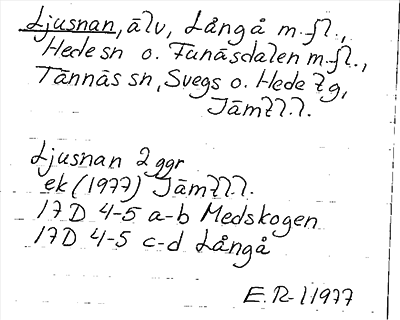 Ljusnan, älv, Långå m.fl.,
Hede sn o. Funäsdalen m.fl.,
Tännäs sn, Svegs o. Hede tg,
Jämtl.l.
Ljusnan 2 ggr
ek (1977) Jämtl.l.
17D 4-5 a-b Medskogen
17D 4-5 c-d Långå
E.R-l 1977